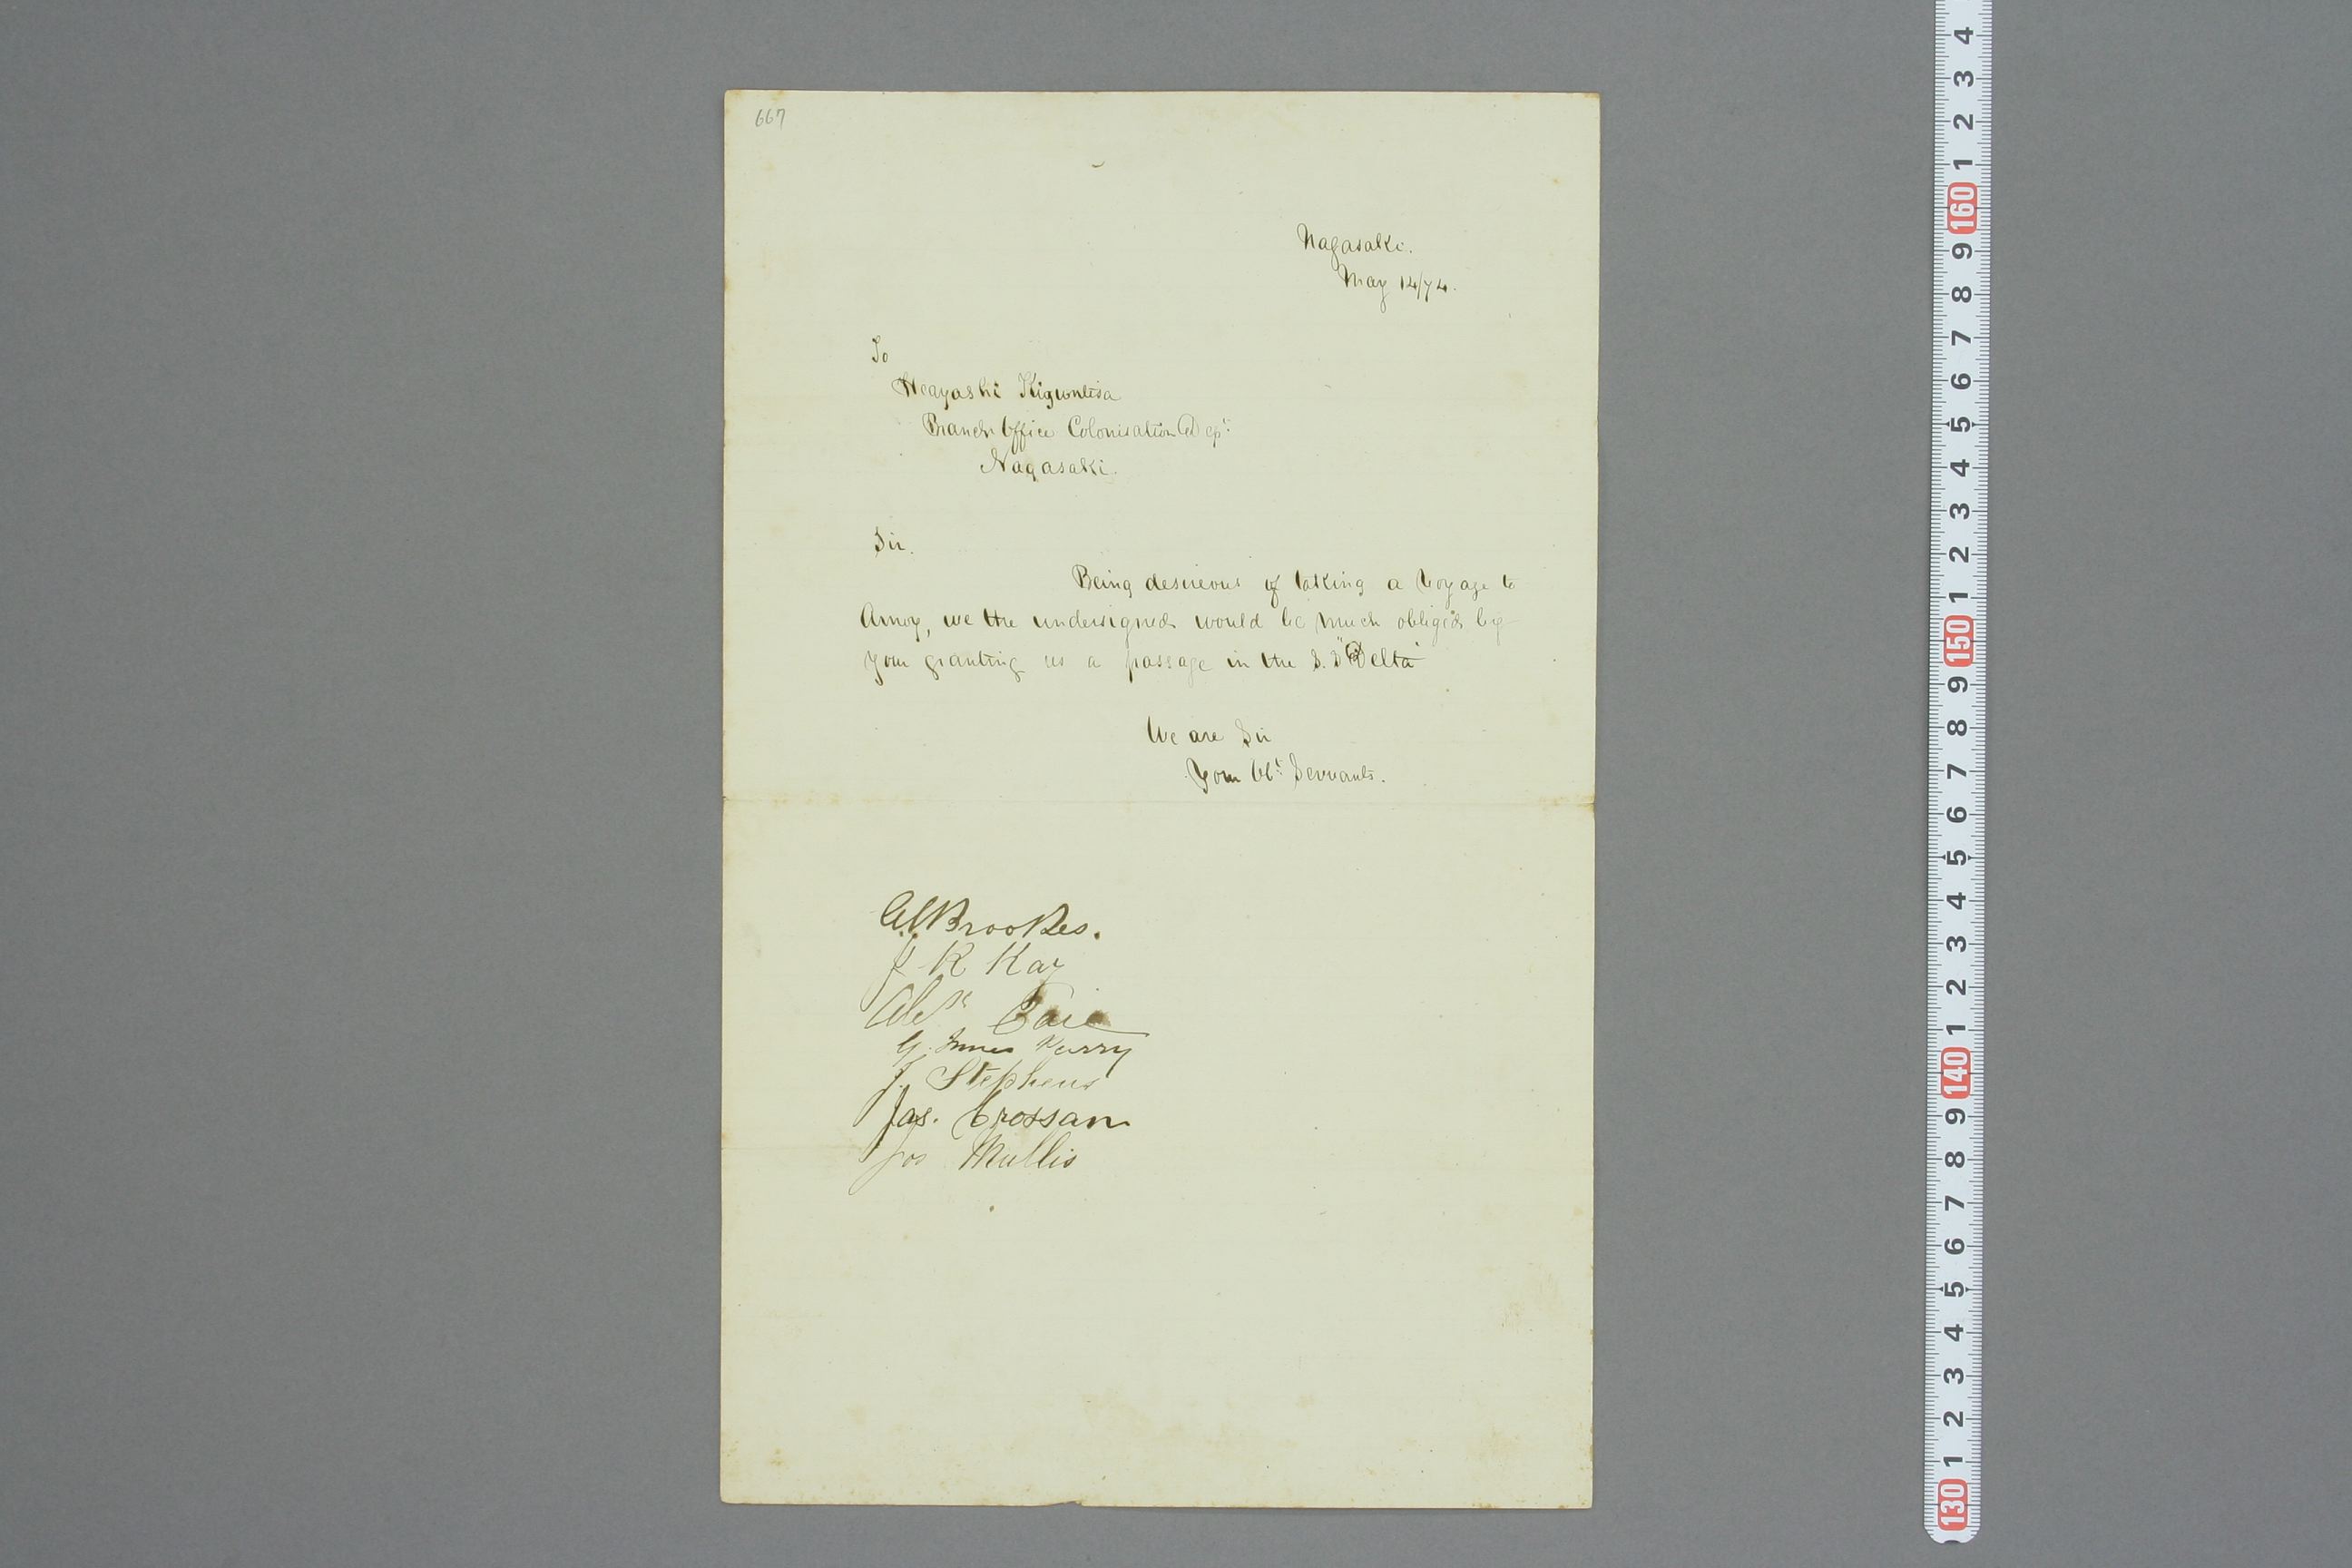 667
Nagasaki.
May 14/74.
To
Heayashi
Branch Office Colonisation Dept
Nagasaki.
Sir.
Being desireous of taking a Voyage to
Amoy, we the undersigned would be much obliged by
your granting us a passage in the S.S "Delta"
We are Sir
Your Obt Servants.
Brookes.
J R Kay
Alexr
G. Innes
J. Stephens
Jas. Crossan
Jos Mullis
4
3
2
1
160
9
8
7
6
5
4
3
2
1
150
9
8
7
6
5
4
3
2
1
140
9
8
7
6
5
4
3
2
1
130